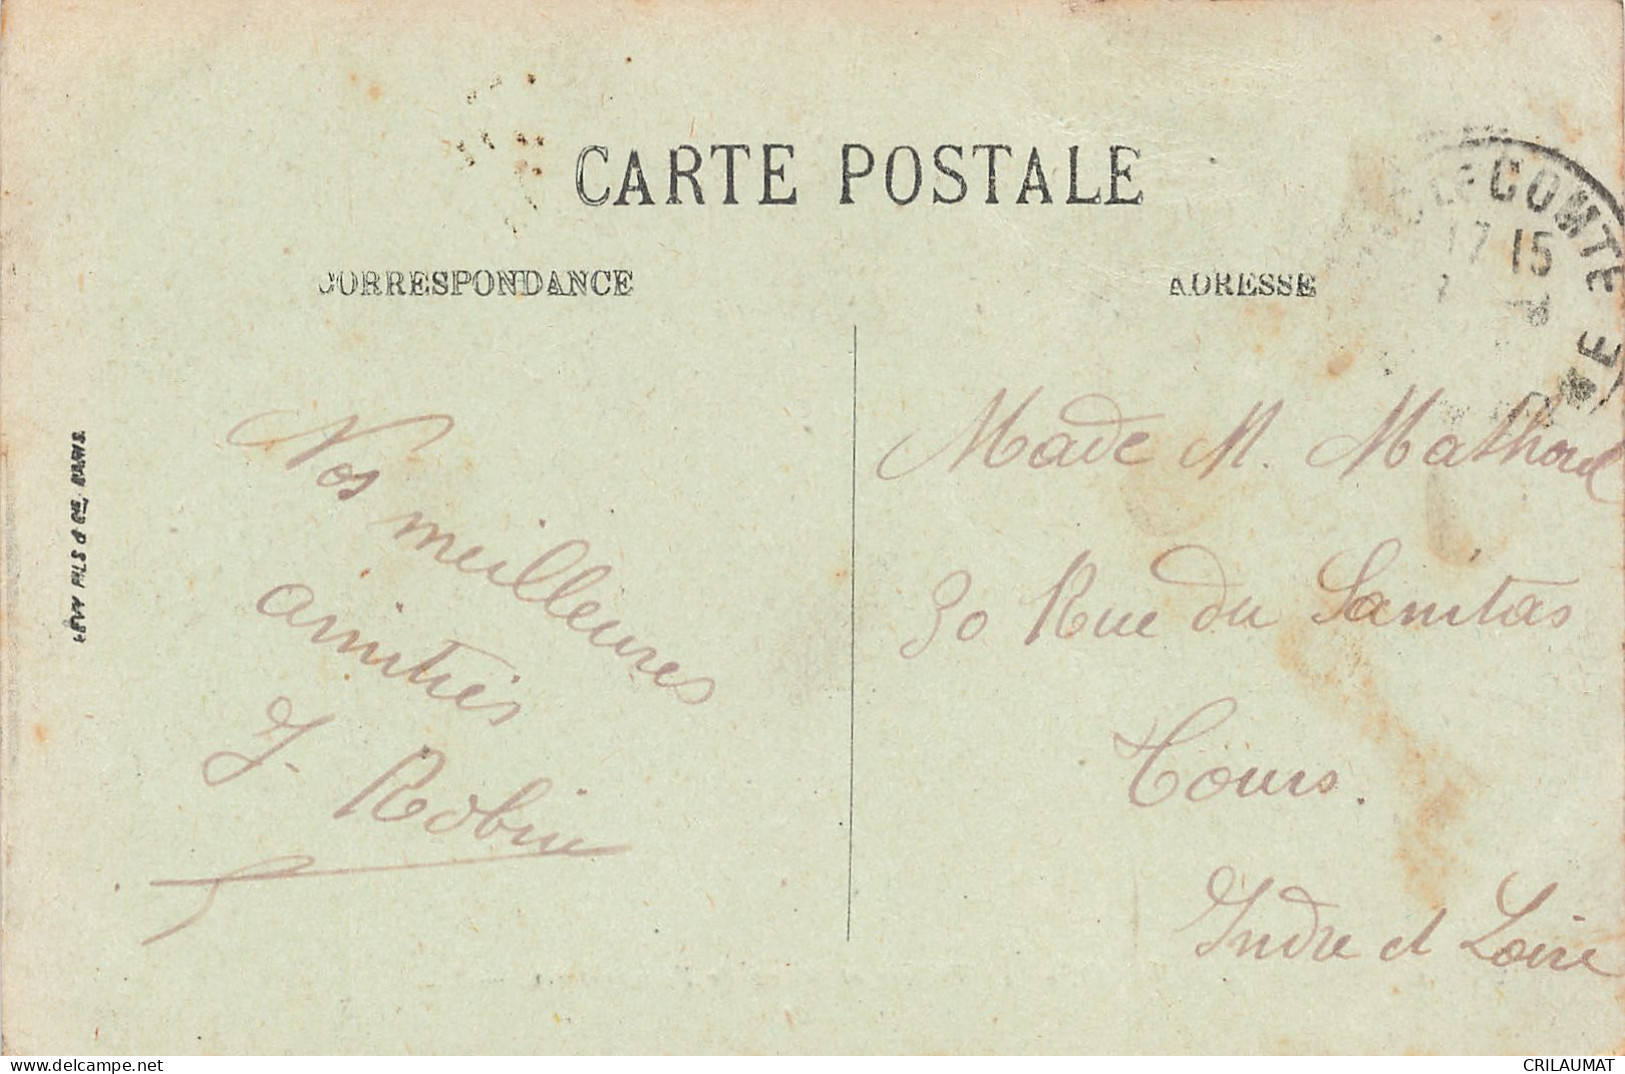 CARTE POSTALE
CORRESPONDANCE
ADRESSE
LECOMTE
17 15
LÉVY FILS & CIE, PARIS.
Nos meilleures
amitiés
J. Robin
Made M. Mathoul
30 Rue du Sanitas
Tours.
Indre et Loire
www.delcampe.net
CRILAUMAT